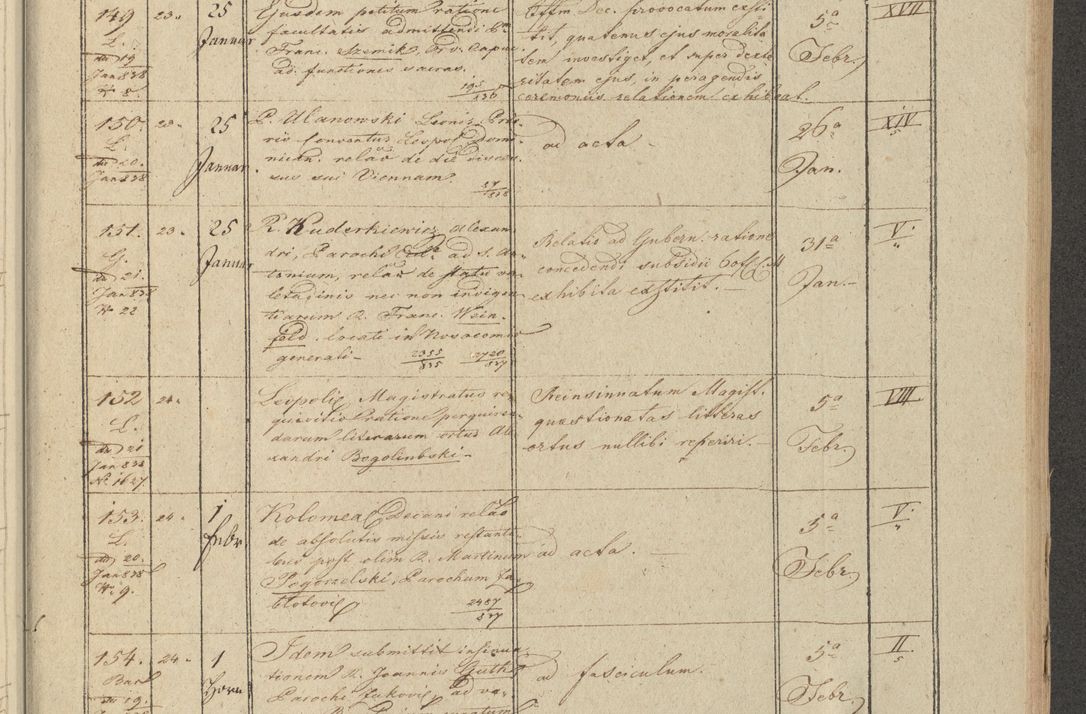 149
L.
dto 19
Jan 838
N 8.
23.
25
Januar
Ejusdem petitum ratione
facultatis admittendi P.
Franc. Szemik, Ord. Capuc.
ad functiones sacras.
195/836
provocatum exsti-
tit, quatenus ejus moralita-
tem investiget, et super dexte-
ritatem ejus, in peragendis
ceremoniis relationem exhibeat.
5a
Febr.
XVII
150.
L.
dto 20.
Jan 838
23.
25
Januar
P. Ulanowski
rii Conventus Leopol. Domi-
nican. relao de die discus-
sus sui Viennam.
37/838
ad acta.
26a
Jan.
XIV
151.
G.
dto 21.
Jan 838
N 22
23.
25
Januar
R. Kuderkiewicz Alexan-
dri, Parochi ad S. An-
tonium, relao de statu va-
letudinis nec non indigen-
tiarum R. Franc. Wein-
feld locati in Nosocomio
generali
2355/835 2720/837
Relatio ad Gubern. ratione
concedendi subsidii
exhibita exstitit.
31a
Jan.
V.
152
L.
dto 21
Jan 838
N. 1627
24.
Leopolis Magistratus re-
quisitio ratione perquiren-
darum literarum ortus Ale-
xandri Bogolinbski.
Reinsinuatum Magist.
quaestionatas litteras
ortus nullibi reperiri.
5a
Febr.
VIII
153.
L.
dto 20.
Jan 838
N. 9.
24.
1
Febr
Kolomea Decani relao
de absolutis missis restanti-
bus post olim R. Martinum
Pogorzelski, Parochum Ja-
blotovie
2487/837
ad acta.
5a
Febr.
V.
154.
dto 19.
24.
1
Idem submittit insinua-
tionem R. Joannis Guth
Parochi Zukovie, ad va-
ad fasciculum.
5a
Febr.
II.